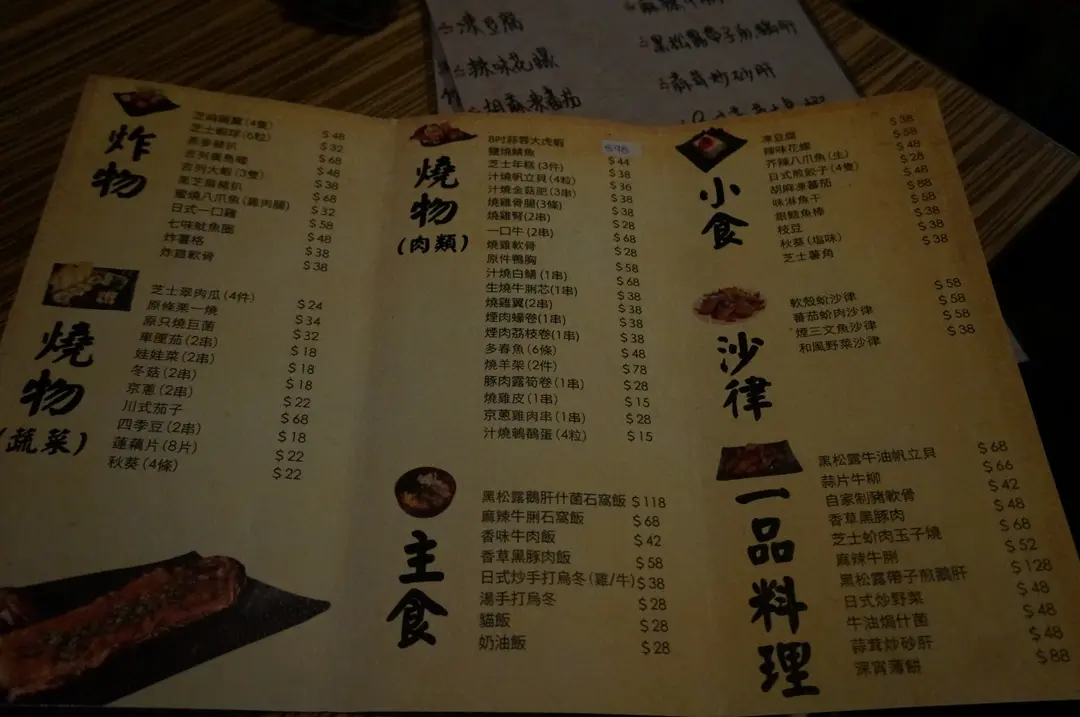 凍豆腐
辣味花螺
炸物
芝士蝦球(6粒) $32
吉列大蝦(3隻)
黑芝麻豬扒 $38
蜜燒八爪魚(雞肉腸) $68
日式一口雞 $32
七味魷魚圈 $58
$48
炸薯格 $38
炸雞軟骨 $38
燒物
(蔬菜)
芝士翠肉瓜(4件) $24
原條粟一燒 $34
原只燒巨菌 $32
車厘茄(2串) $18
娃娃菜(2串) $18
冬菇(2串) $18
京蔥(2串) $22
川式茄子 $68
四季豆(2串) $18
蓮藕片(8片) $22
秋葵(4條) $22
燒物
(肉類)
8吋蒜蓉大虎蝦 $98
鹽燒鯖魚 $44
芝士年糕(3件) $38
汁燒帆立貝(4粒) $36
汁燒金菇肥(3串) $38
燒雞骨腿(3條) $38
燒雞腎(2串) $28
一口牛(2串) $68
燒雞軟骨 $28
原件鴨胸 $58
汁燒白鱔(1串) $68
生燒牛脷芯(1串) $38
燒雞翼(2串) $38
煙肉蠔卷(1串) $38
煙肉荔枝卷(1串) $38
多春魚(6條) $48
燒羊架(2件) $78
豚肉露筍卷(1串) $28
燒雞皮(1串) $15
京蔥雞肉串(1串) $28
汁燒鵪鶉蛋(4粒) $15
主食
黑松露鵝肝什菌石窩飯 $118
麻辣牛脷石窩飯 $68
香味牛肉飯 $42
香草黑豚肉飯 $58
日式炒手打烏冬(雞/牛) $38
湯手打烏冬 $28
貓飯 $28
奶油飯 $28
小食
凍豆腐 $38
辣味花螺 $58
芥辣八爪魚(生) $48
日式煎餃子(4隻) $28
胡麻凍蕃茄 $48
味淋魚干 $88
銀鱈魚棒 $58
枝豆 $38
秋葵(塩味) $48
芝士薯角 $38
沙律
軟殼蚧沙律 $58
蕃茄蚧肉沙律 $58
煙三文魚沙律 $58
和風野菜沙律 $38
一品料理
黑松露牛油帆立貝 $68
蒜片牛柳 $66
自家制豬軟骨 $42
香草黑豚肉 $48
芝士蚧肉玉子燒 $68
麻辣牛脷 $52
黑松露帶子煎鵝肝 $128
日式炒野菜 $48
牛油焗什菌 $48
蒜茸炒砂肝 $48
深宵薄餅 $88